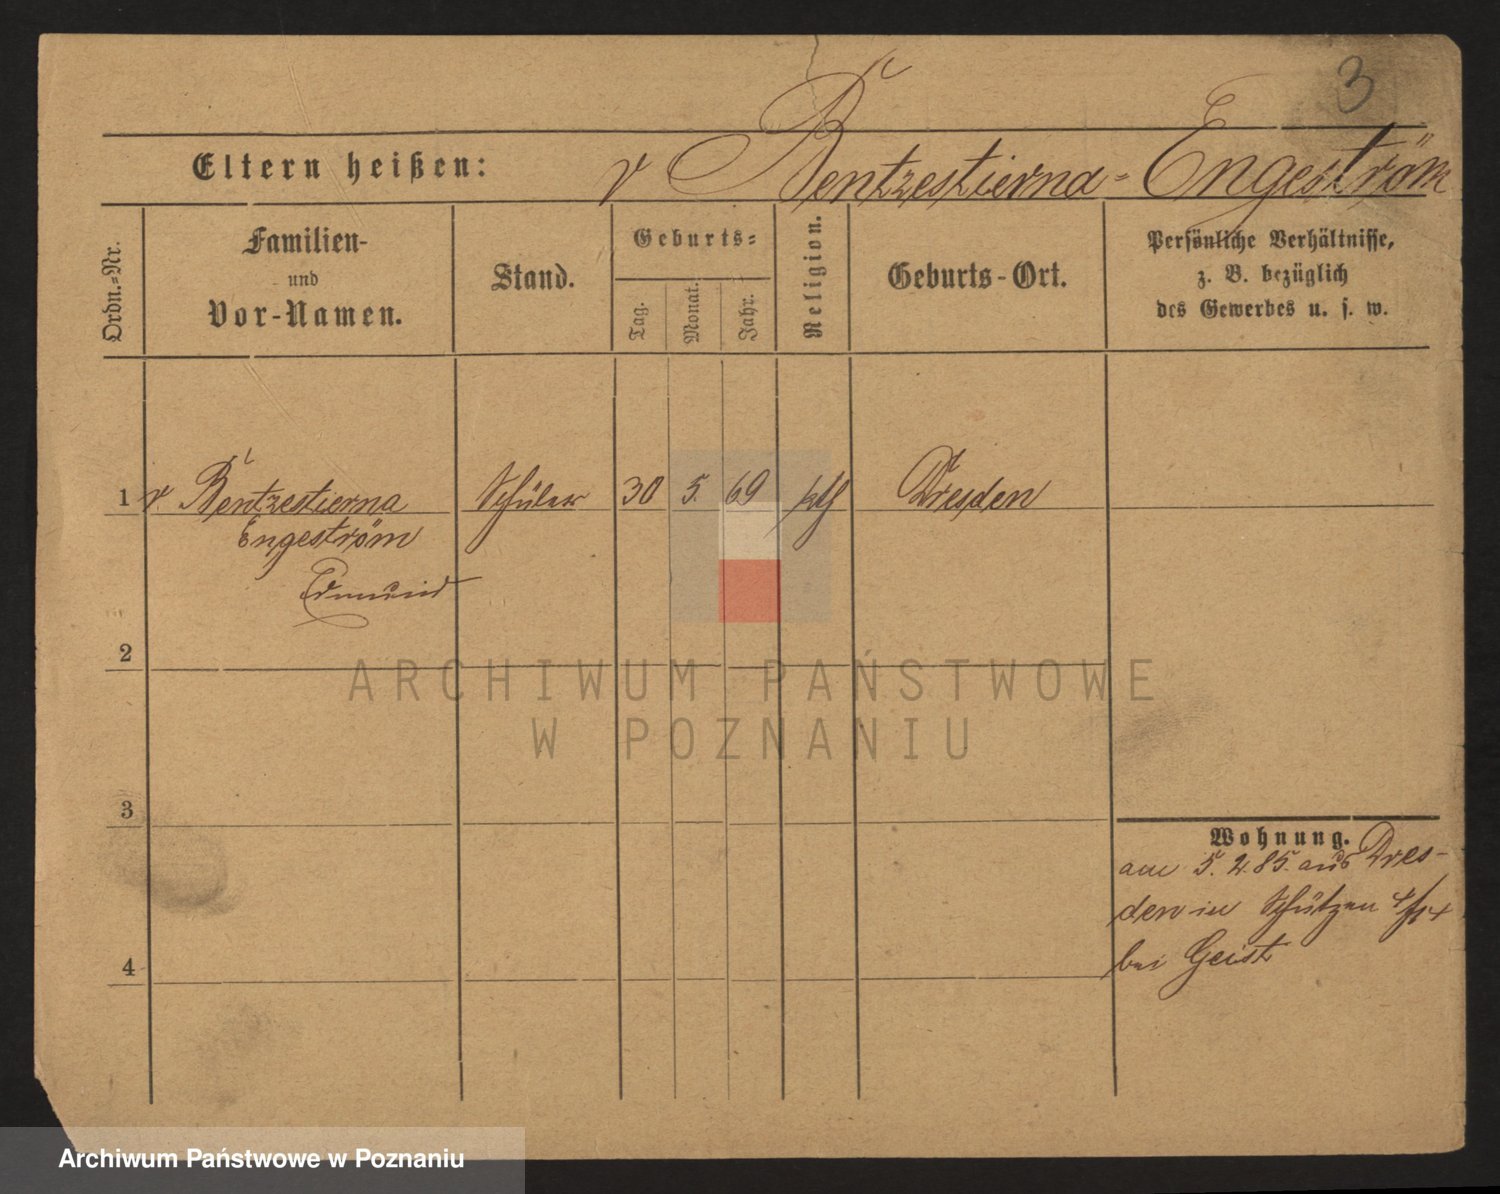 3
Eltern heißen: v Bentzestierna-Engeström
Ordn.-Nr.
Familien-
und
Vor-Namen.
Stand.
Geburts-
Tag.
Monat.
Jahr.
Religion.
Geburts-Ort.
Persönliche Verhältnisse,
z. B. bezüglich
des Gewerbes u. s. w.
1 v. Bentzestierna Schüler 30 5. 69 kth Dresden
Engeström
Edmund
2
3
4
Wohnung.
am 5. 2. 85. aus Dres-
den in Schützen
bei Geist
ARCHIWUM PAŃSTWOWE
W POZNANIU
Archiwum Państwowe w Poznaniu